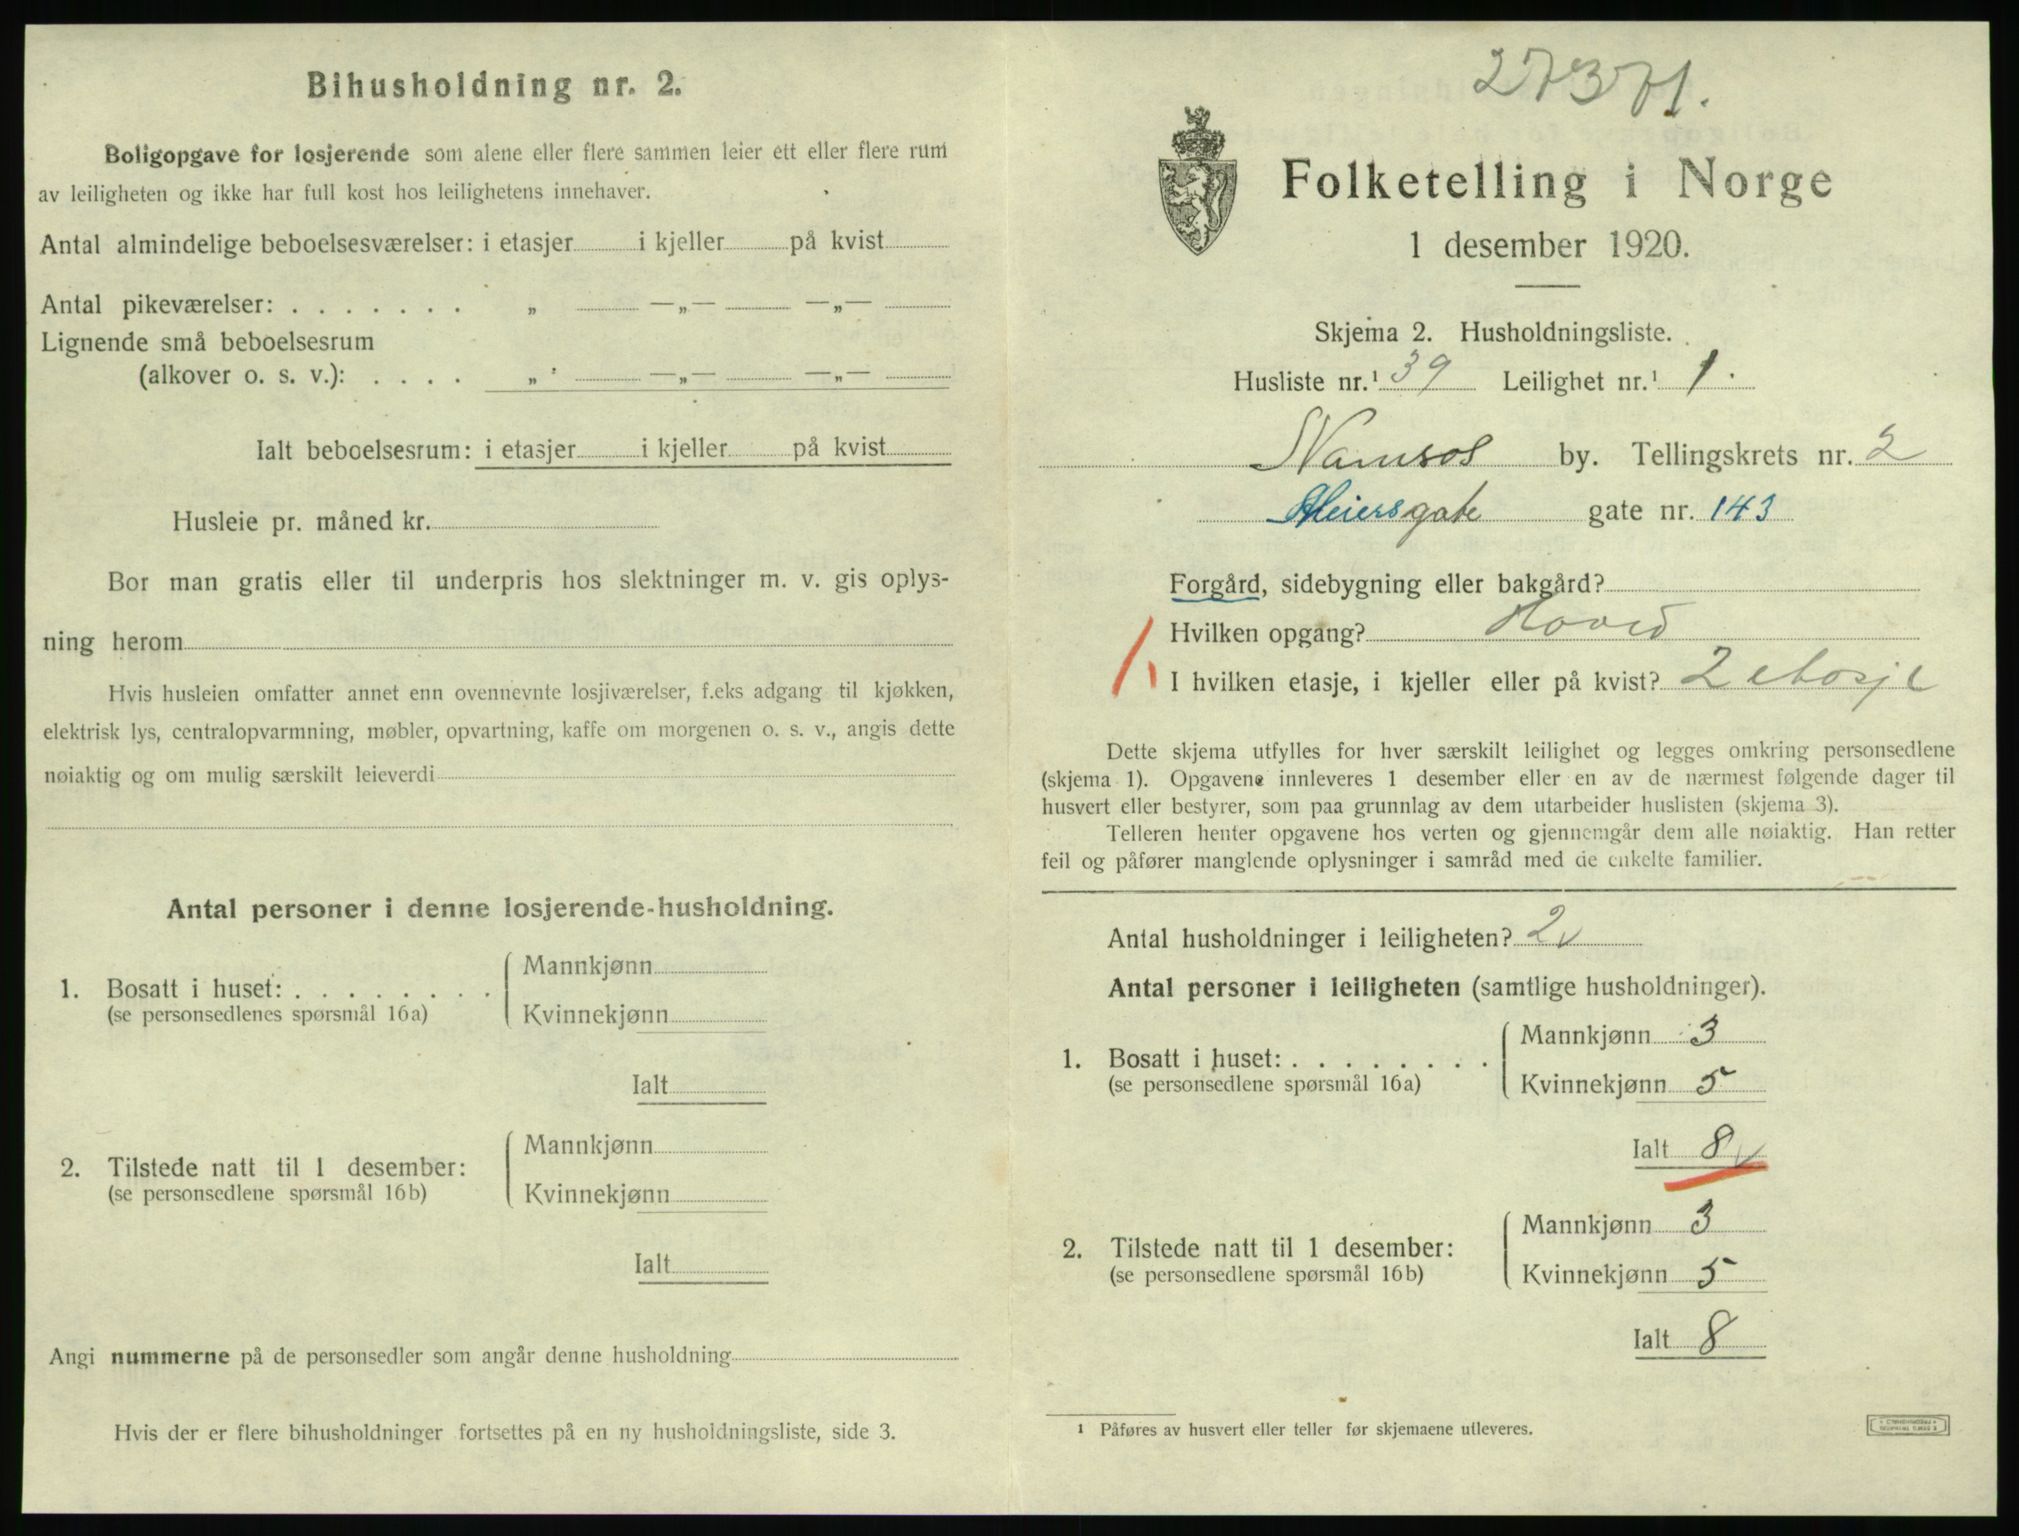 Bihusholdning nr. 2.
Boligopgave for losjerende som alene eller flere sammen leier ett eller flere rum
av leiligheten og ikke har full kost hos leilighetens innehaver.
Antal almindelige beboelsesværelser: i etasjer i kjeller på kvist
Antal pikeværelser: . . . . . . . „ —„— —„—
Lignende små beboelsesrum
(alkover o. s. v.): . . . . „ —„— —„—
Ialt beboelsesrum: i etasjer i kjeller på kvist
Husleie pr. måned kr.
Bor man gratis eller til underpris hos slektninger m. v. gis oplys-
ning herom
Hvis husleien omfatter annet enn ovennevnte losjiværelser, f.eks adgang til kjøkken,
elektrisk lys, centralopvarmning, møbler, opvartning, kaffe om morgenen o. s. v., angis dette
nøiaktig og om mulig særskilt leieverdi
Antal personer i denne losjerende-husholdning.
1. Bosatt i huset: . . . . . . . .
(se personsedlenes spørsmål 16a)
Mannkjønn
Kvinnekjønn
Ialt
2. Tilstede natt til 1 desember:
(se personsedlene spørsmål 16b)
Mannkjønn
Kvinnekjønn
Ialt
Angi nummerne på de personsedler som angår denne husholdning
Hvis der er flere bihusholdninger fortsettes på en ny husholdningsliste, side 3.
27371.
Folketelling i Norge
1 desember 1920.
Skjema 2. Husholdningsliste.
Husliste nr.¹ 39 Leilighet nr.¹ 1.
Namsos by. Tellingskrets nr. 2
gate nr. 143
Forgård, sidebygning eller bakgård?
Hvilken opgang? Hoved
I hvilken etasje, i kjeller eller på kvist? 2 etasje
Dette skjema utfylles for hver særskilt leilighet og legges omkring personsedlene
(skjema 1). Opgavene innleveres 1 desember eller en av de nærmest følgende dager til
husvert eller bestyrer, som paa grunnlag av dem utarbeider huslisten (skjema 3).
Telleren henter opgavene hos verten og gjennemgår dem alle nøiaktig. Han retter
feil og påfører manglende oplysninger i samråd med de enkelte familier.
Antal husholdninger i leiligheten? 2
Antal personer i leiligheten (samtlige husholdninger).
1. Bosatt i huset: . . . . . . . .
(se personsedlene spørsmål 16a)
Mannkjønn 3
Kvinnekjønn 5
Ialt 8
2. Tilstede natt til 1 desember:
(se personsedlene spørsmål 16b)
Mannkjønn 3
Kvinnekjønn 5
Ialt 8
¹ Påføres av husvert eller teller før skjemaene utleveres.